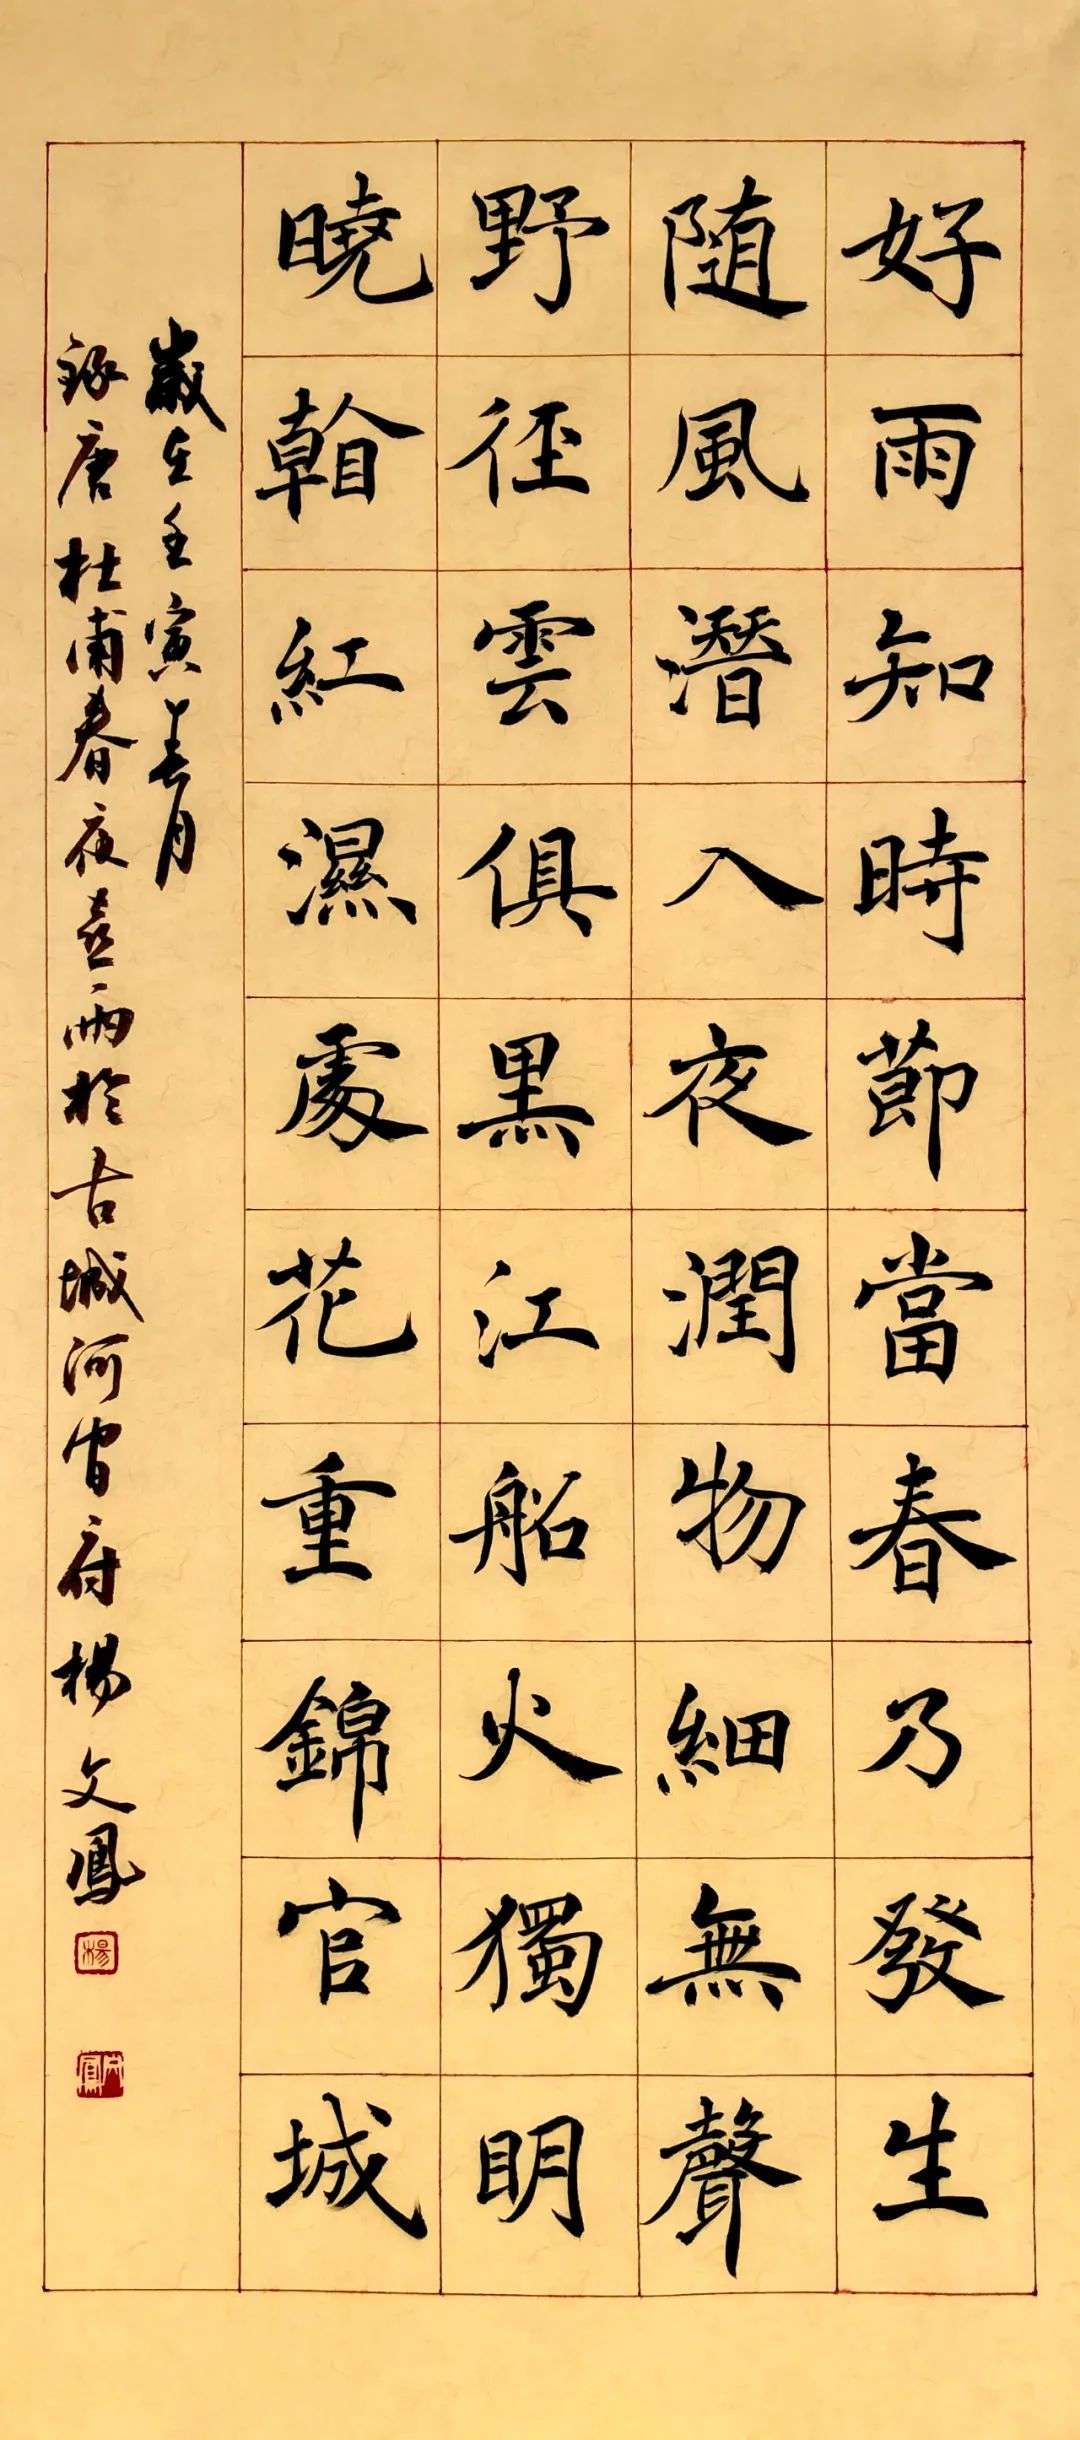 好雨知時莭當春乃發生
随風潛入夜潤物細無聲
野径雲俱黑江船火獨眀
曉看紅濕處花重錦官城
歲在壬寅春月
錄唐杜甫春夜喜雨於古城河間府楊文鳳
楊
文鳳